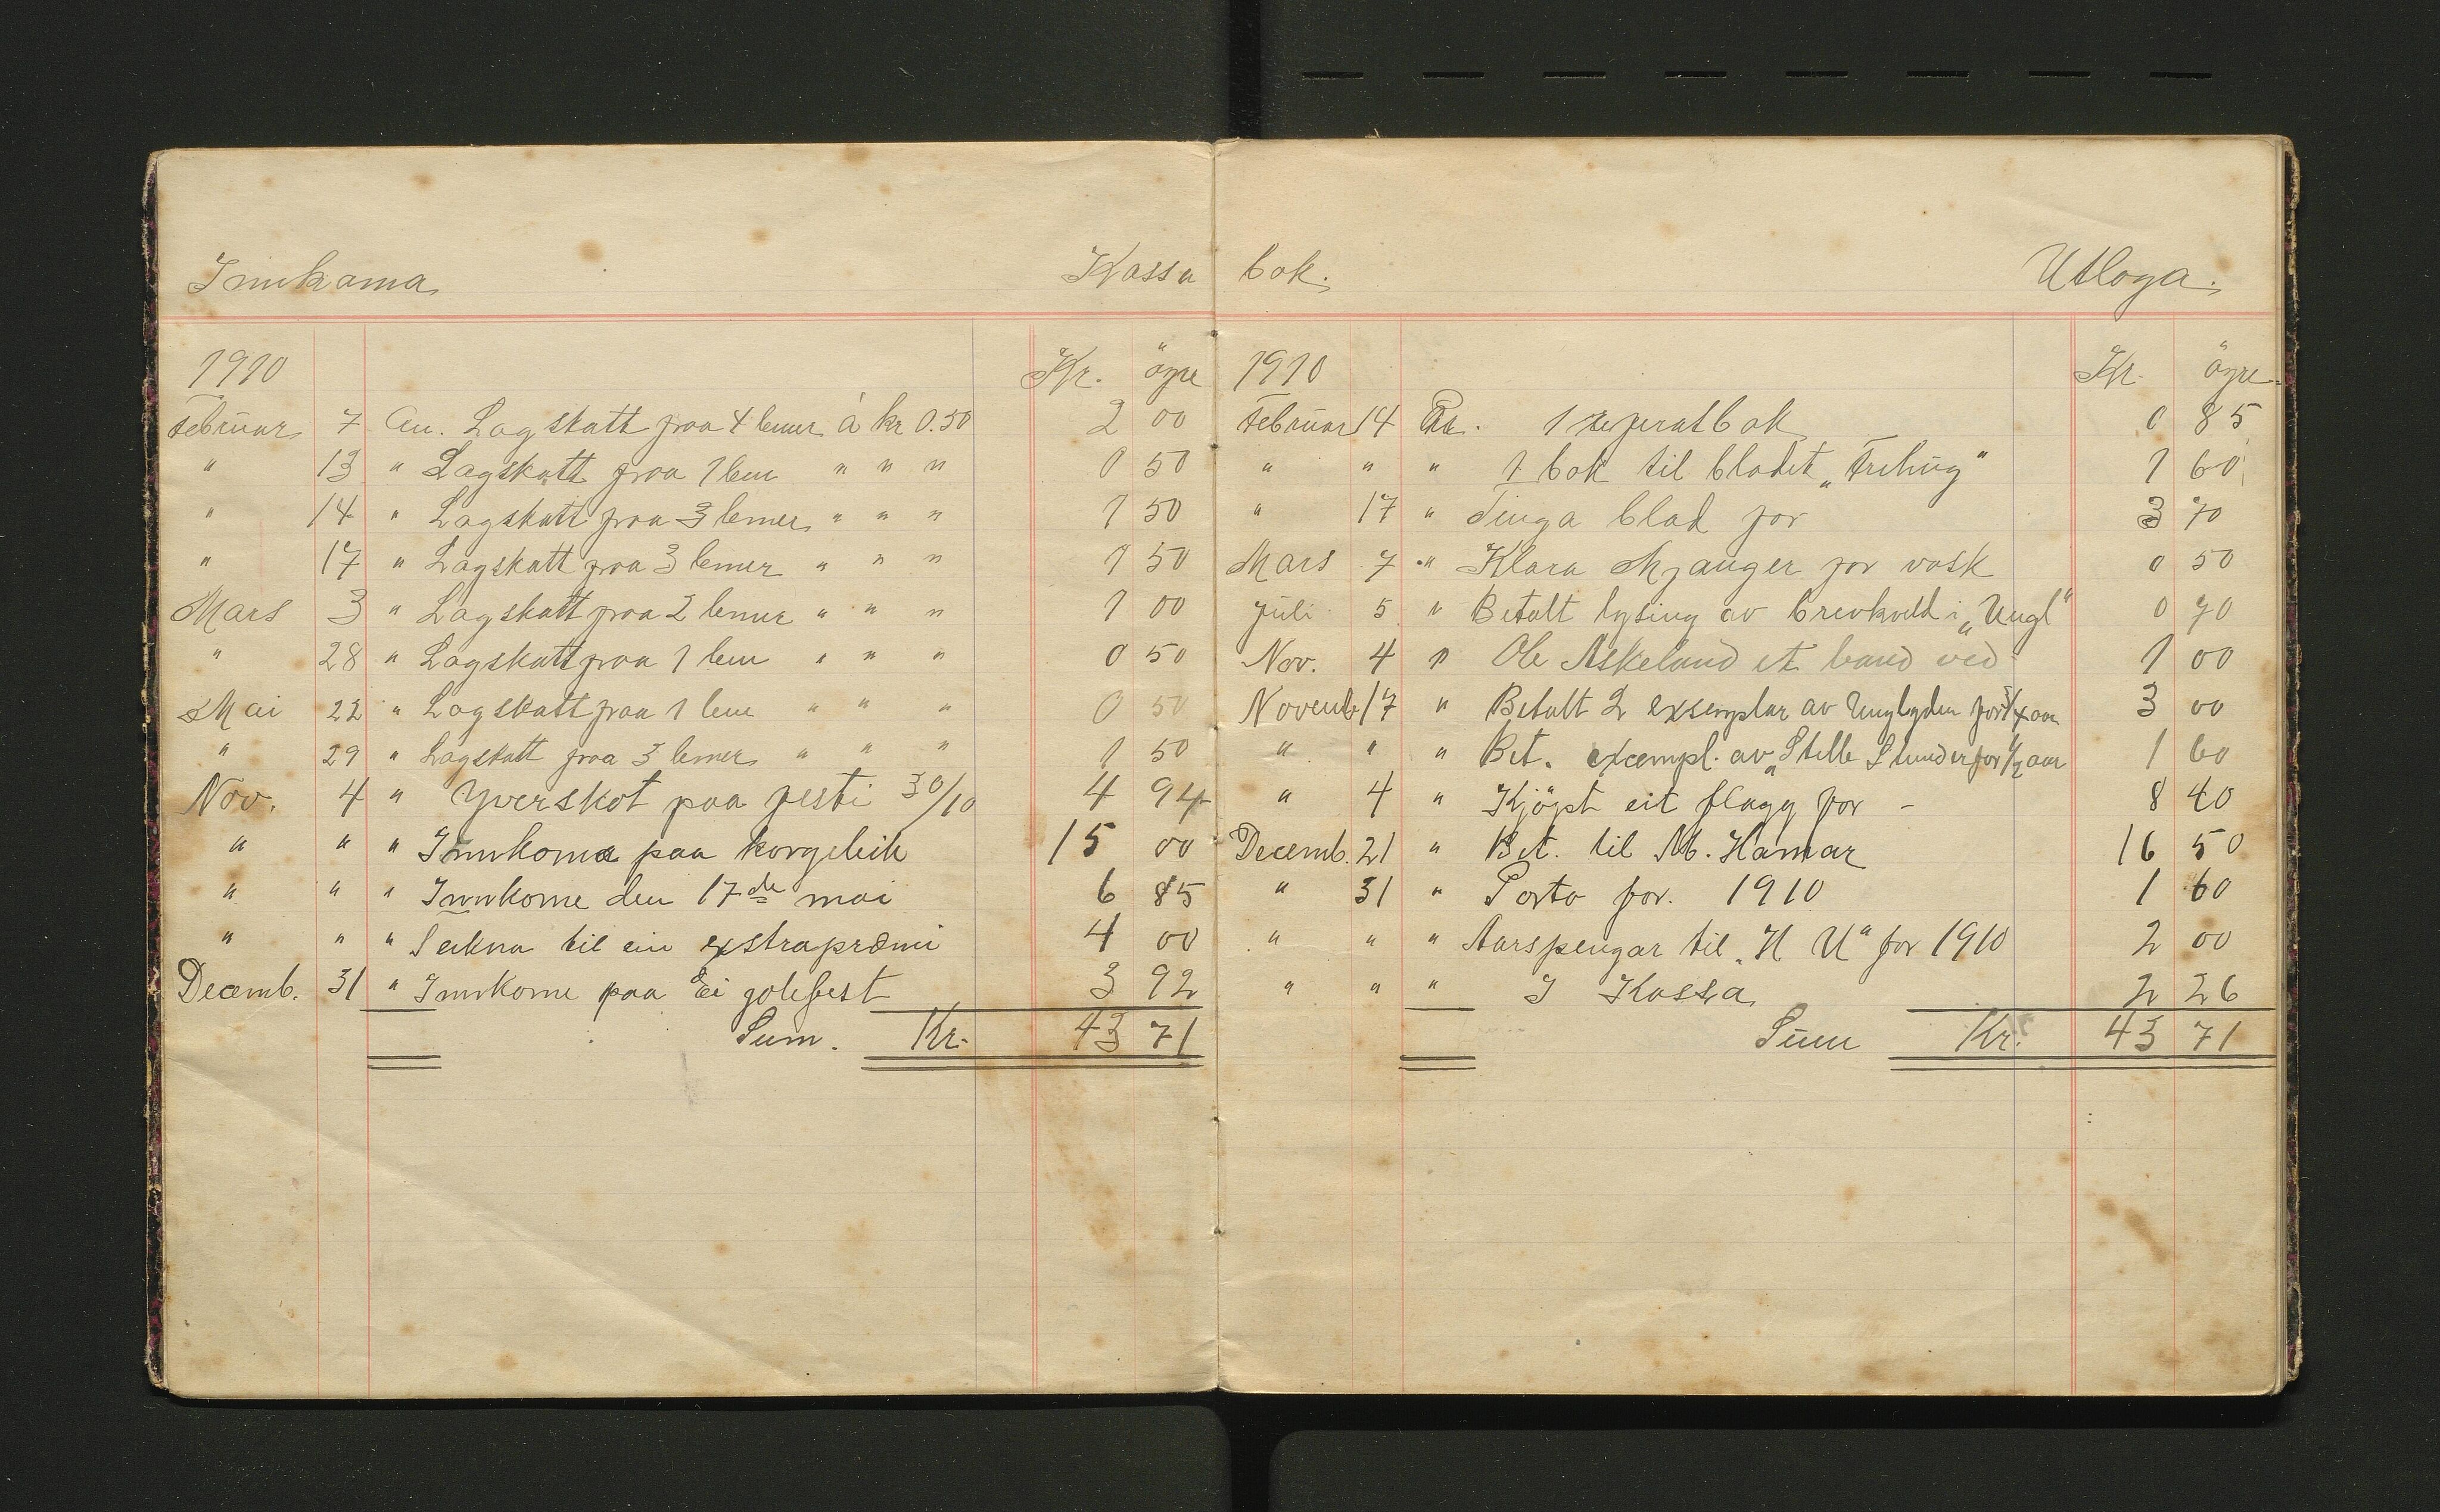 Innkoma Kassa
1910 Kr. öyre
Februar 7 An. Lagskatt fraa 4 lemer à kr 0.50 2 00
" 13 " Lagskatt fraa 1 lem " " " 0 50
" 14 " Lagskatt fraa 3 lemer " " " 1 50
" 17 " Lagskatt fraa 3 lemer " " " 1 50
Mars 3 " Lagskatt fraa 2 lemer " " " 1 00
" 28 " Lagskatt fraa 1 lem " " " 0 50
Mai 22 " Lagskatt fraa 1 lem " " " 0 50
" 29 " Lagskatt fraa 3 lemer " " " 1 50
Nov. 4 " Yverskot paa festi 30/10 4 94
" " " Innkome paa korgeleik 15 00
" " " Innkome den 17de mai 6 85
" " " Seikna til ein exstrapræmi 4 00
Decemb. 31 " Innkome paa Ei golefest 3 92
Sum. Kr. 43 71
bok. Utloga.
1910 Kr. öyre
Februar 14 1 referatbok 0 85
" " " 1 bok til bladet „Frihug" 1 60
" 17 " Tinga blad for 3 70
Mars 7 " Klara Mjanger for vask 0 50
Juli 5 " Betalt lysing av brevkveld i „Ungl" 0 70
Nov. 4 " Ole Askeland et band ved 1 00
Novemb 17 " Betalt 2 exsemplar av Unglyden for 3/4 aar 3 00
" " " Bet. excempl. av „Stille Stunder for 1/2 aar 1 60
" 4 " Kjöpt eit flagg for - 8 40
Decemb. 21 " Bet. til M. Hamar 16 50
" 31 " Porto for. 1910 1 60
" " " Aarspengar til „H U" for 1910 2 00
" " " I Kassa 2 26
Sum Kr. 43 71